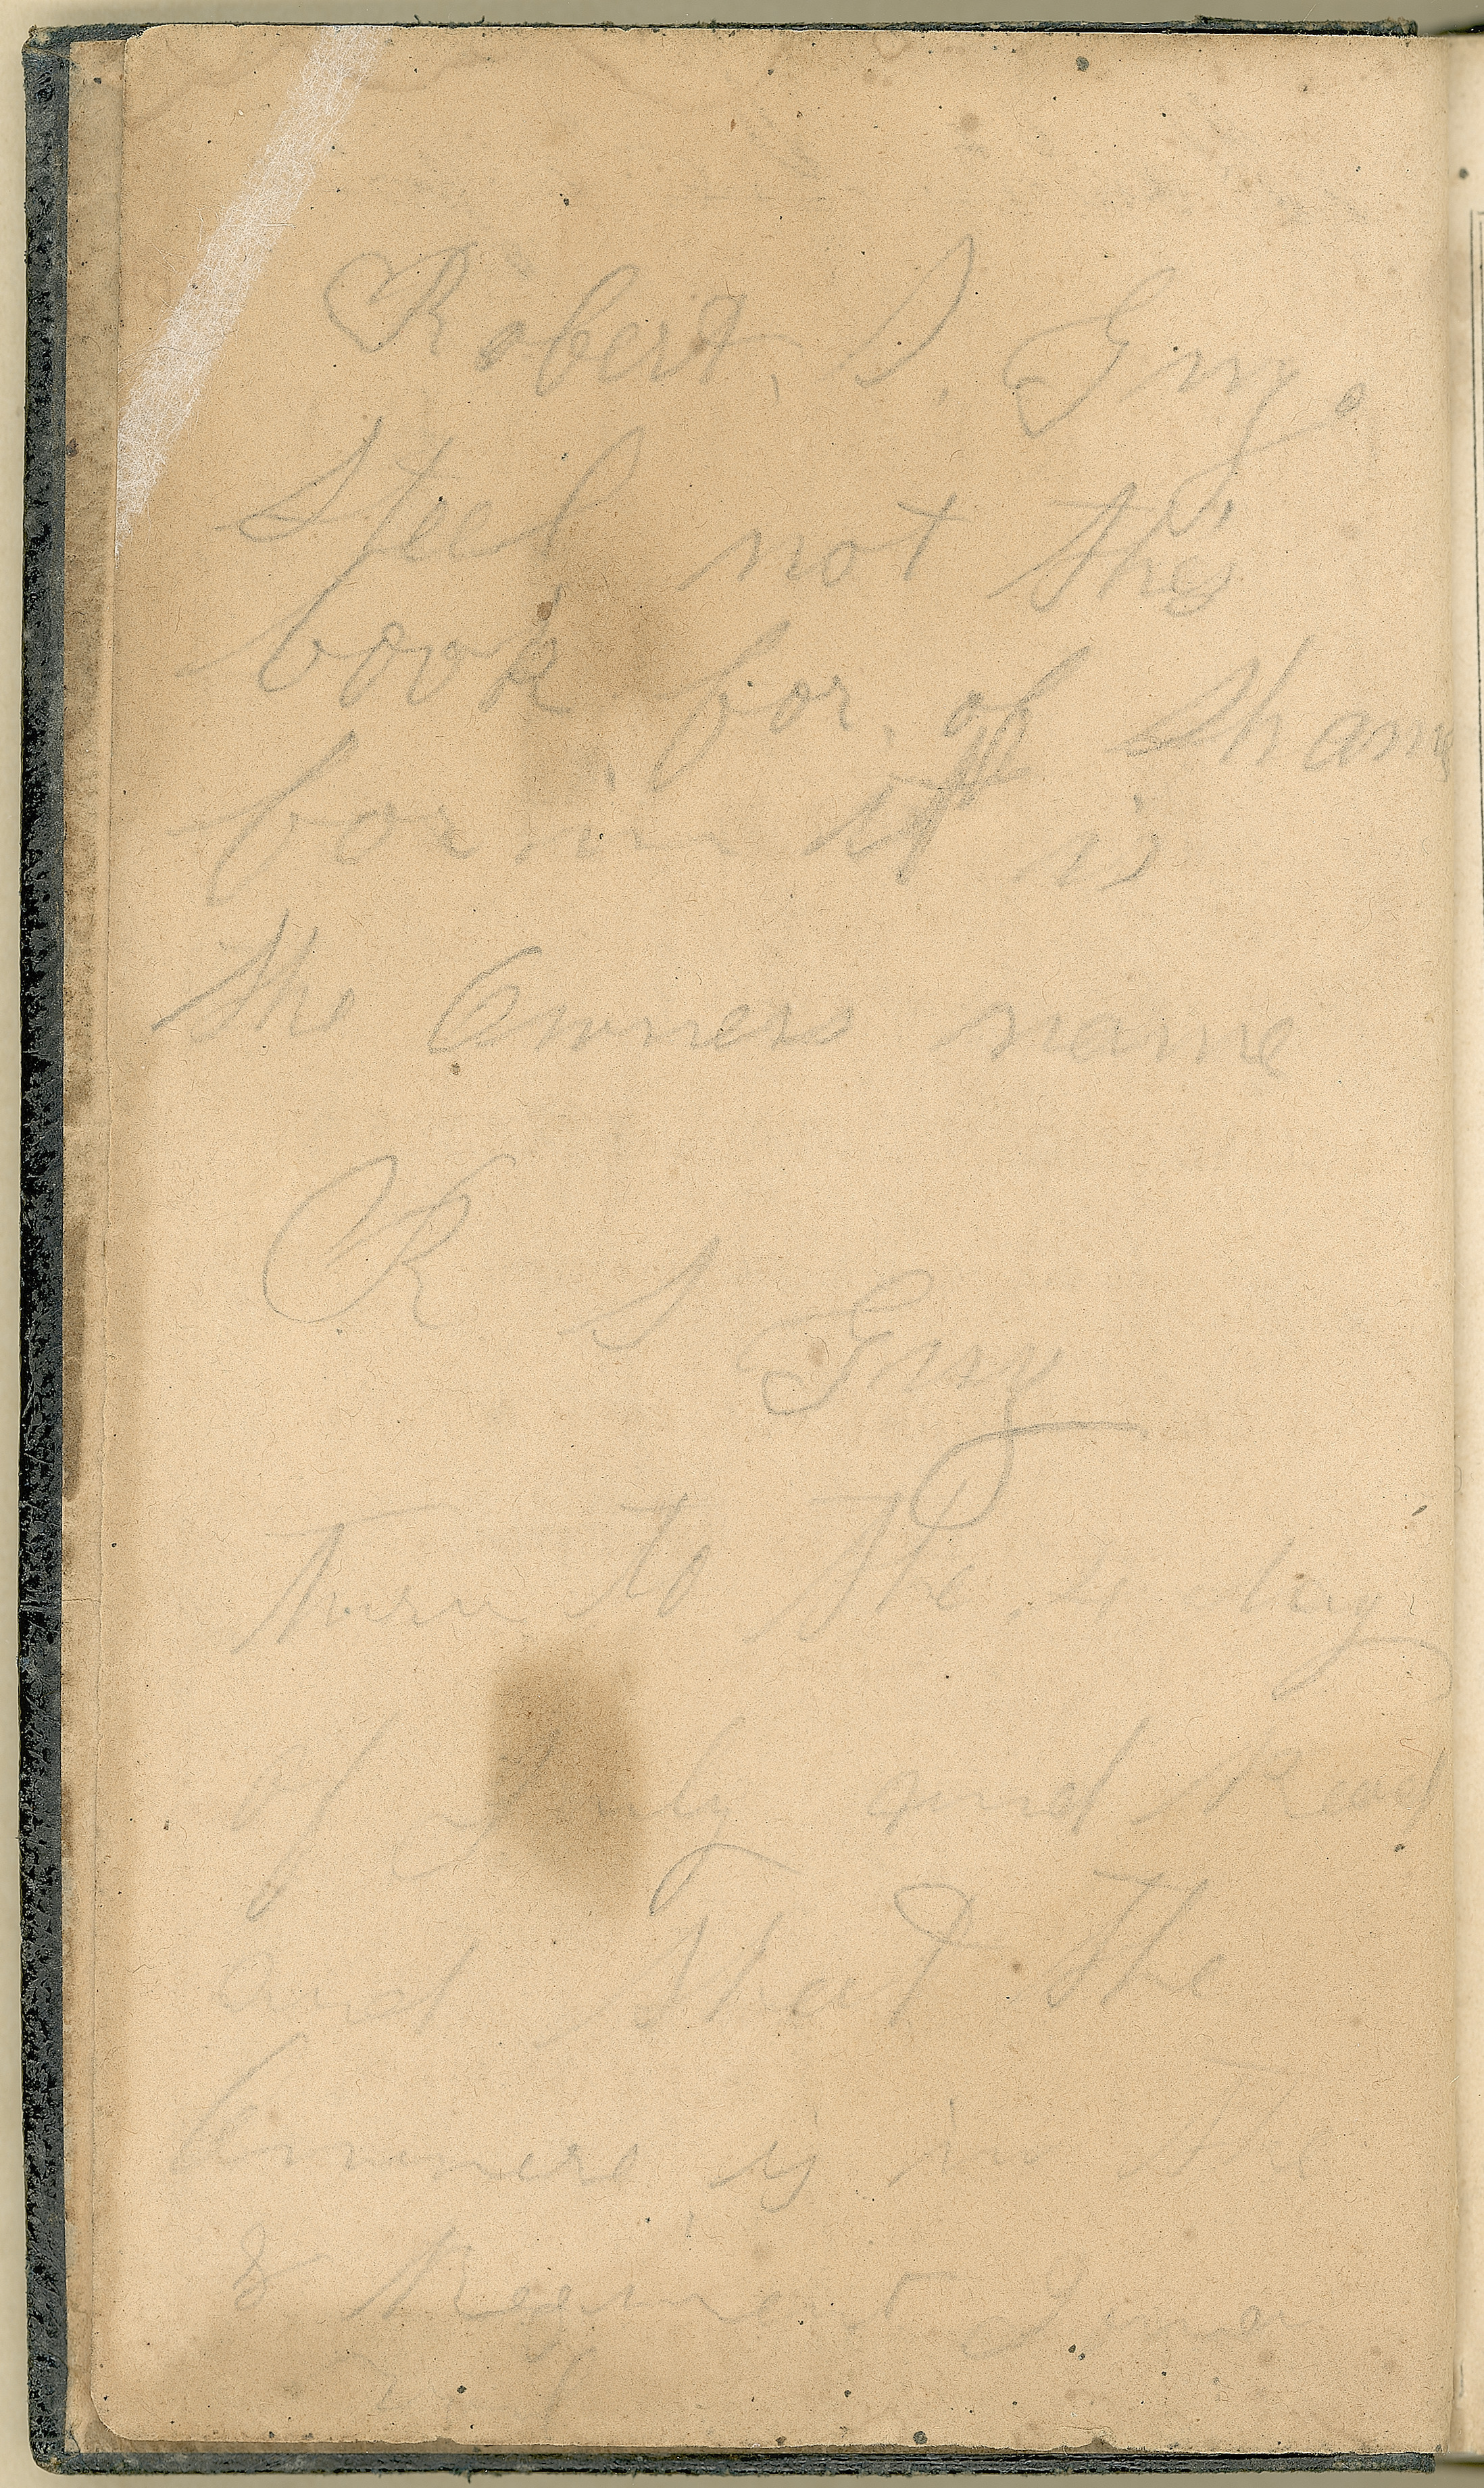 Robert, S, Guy,
Steel not this
book for, of Sham
for in it is
the Owners name
R S Guy
turn to the 4 day
of July and Read
and that the
Owners is in the
8 Regiment Iowa